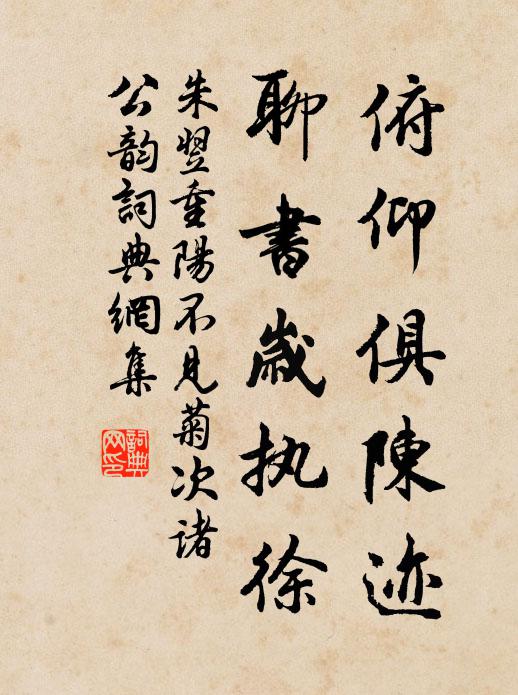 俯仰俱陳迹
聊書歲执徐
朱翌重陽不見菊次诸
公韵詞典網集
詞典网印